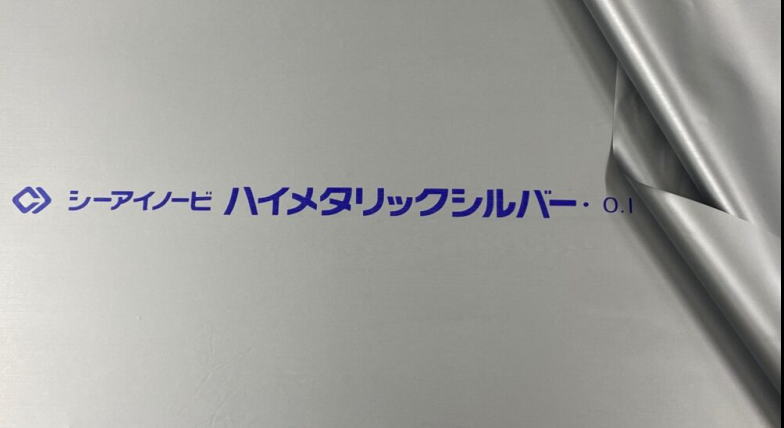 シーアイノービ ハイメタリックシルバー・ 0.1